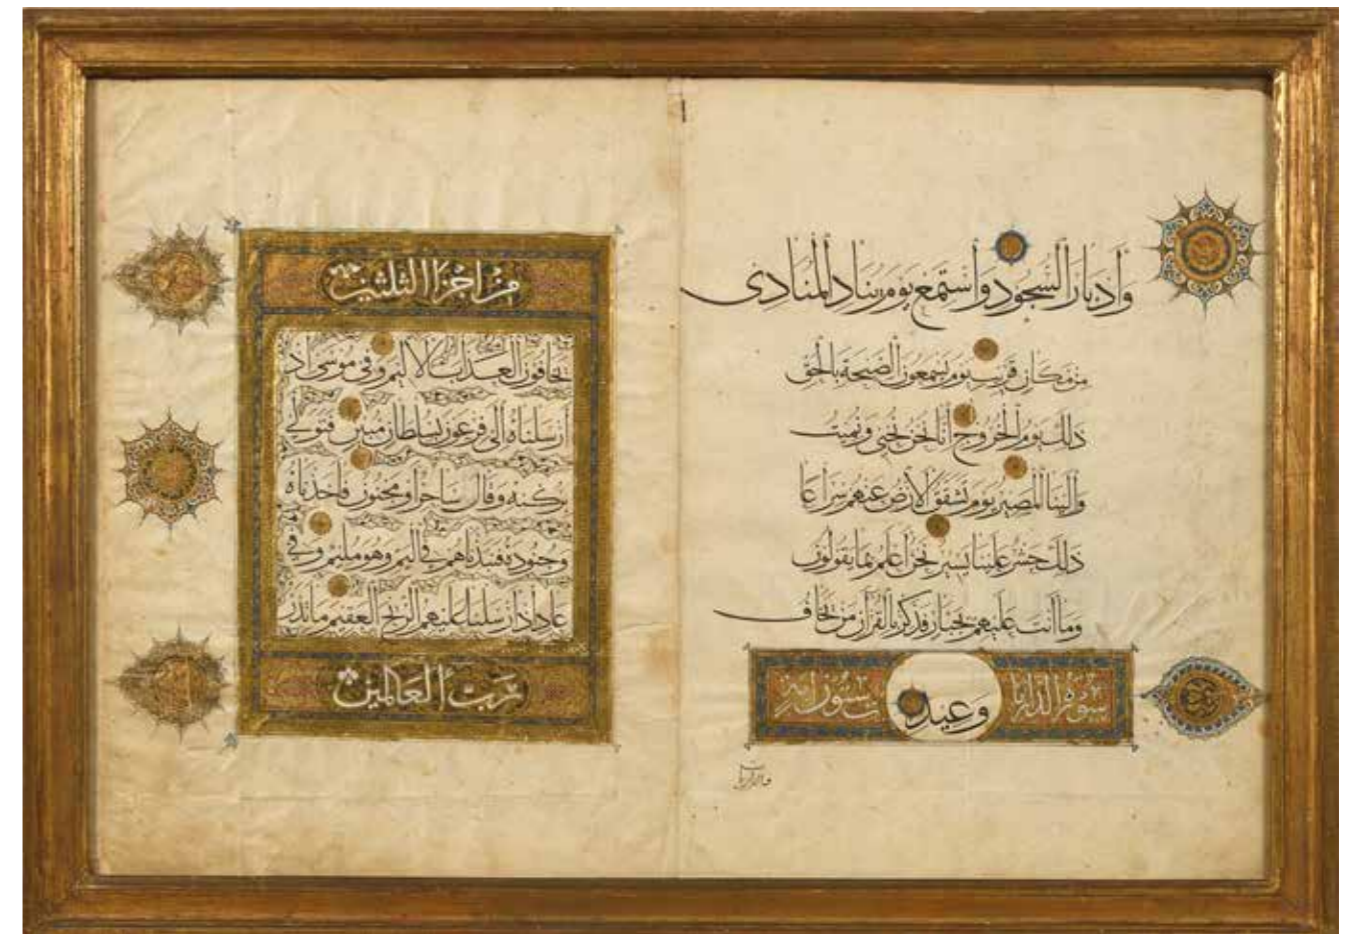 وادبار السجود واستمع يوم يناد المنادى
من مكان قريب يوم يسمعون الصيحة بالحق
ذلك يوم الخروج انا نحن نحيى ونميت
والينا المصير يوم تشقق الارض عنهم سراعا
ذلك حشر علينا يسير نحن اعلم بما يقولون
وما انت عليهم بجبار فذكر بالقرآن من يخاف
سورة الذاريات وعيد ستون اية
والذاريات
من اجزا الثلثين
يخافون العذاب الاليم وفى موسى اذ
أرسلناه الى فرعون بسلطان مبين فتولى
بركنه وقال ساحر او مجنون فاخذناه
وجنوده فنبذناهم فى اليم وهو مليم وفى
عاد اذ ارسلنا عليهم الريح العقيم ما تذر
رب العالمين